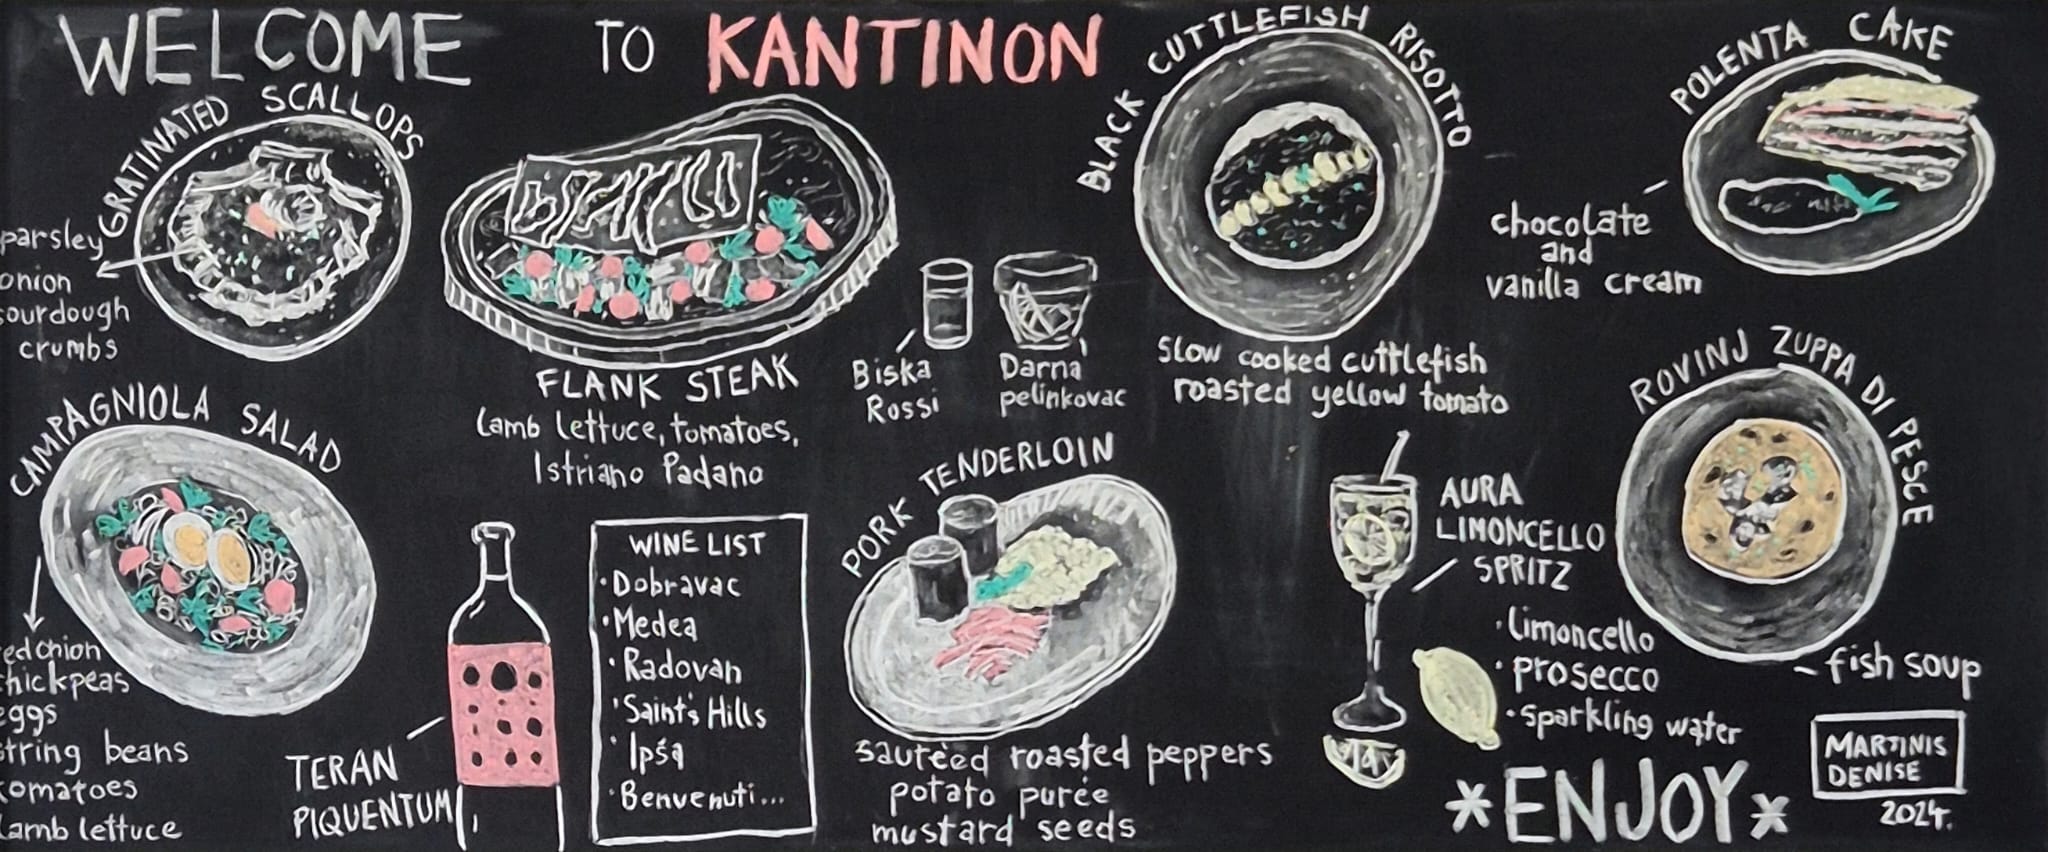 WELCOME TO KANTINON
GRATINATED SCALLOPS
parsley
onion
sourdough
crumbs
FLANK STEAK
Lamb lettuce, tomatoes,
Istriano Padano
Biska
Rossi
Darna
pelinkovac
BLACK CUTTLEFISH RISOTTO
Slow cooked cuttlefish
roasted yellow tomato
POLENTA CAKE
chocolate
and
vanilla cream
CAMPAGNIOLA SALAD
ed onion
hickpeas
eggs
tring beans
tomatoes
Lamb lettuce
TERAN
PIQUENTUM
WINE LIST
·Dobravac
·Medea
·Radovan
·Saint's Hills
·Ipša
·Benvenuti...
PORK TENDERLOIN
sautéed roasted peppers
potato purée
mustard seeds
AURA
LIMONCELLO
SPRITZ
·limoncello
·prosecco
·sparkling water
ROVINJ ZUPPA DI PESCE
~ fish soup
*ENJOY*
MARTINIS
DENISE
2024.